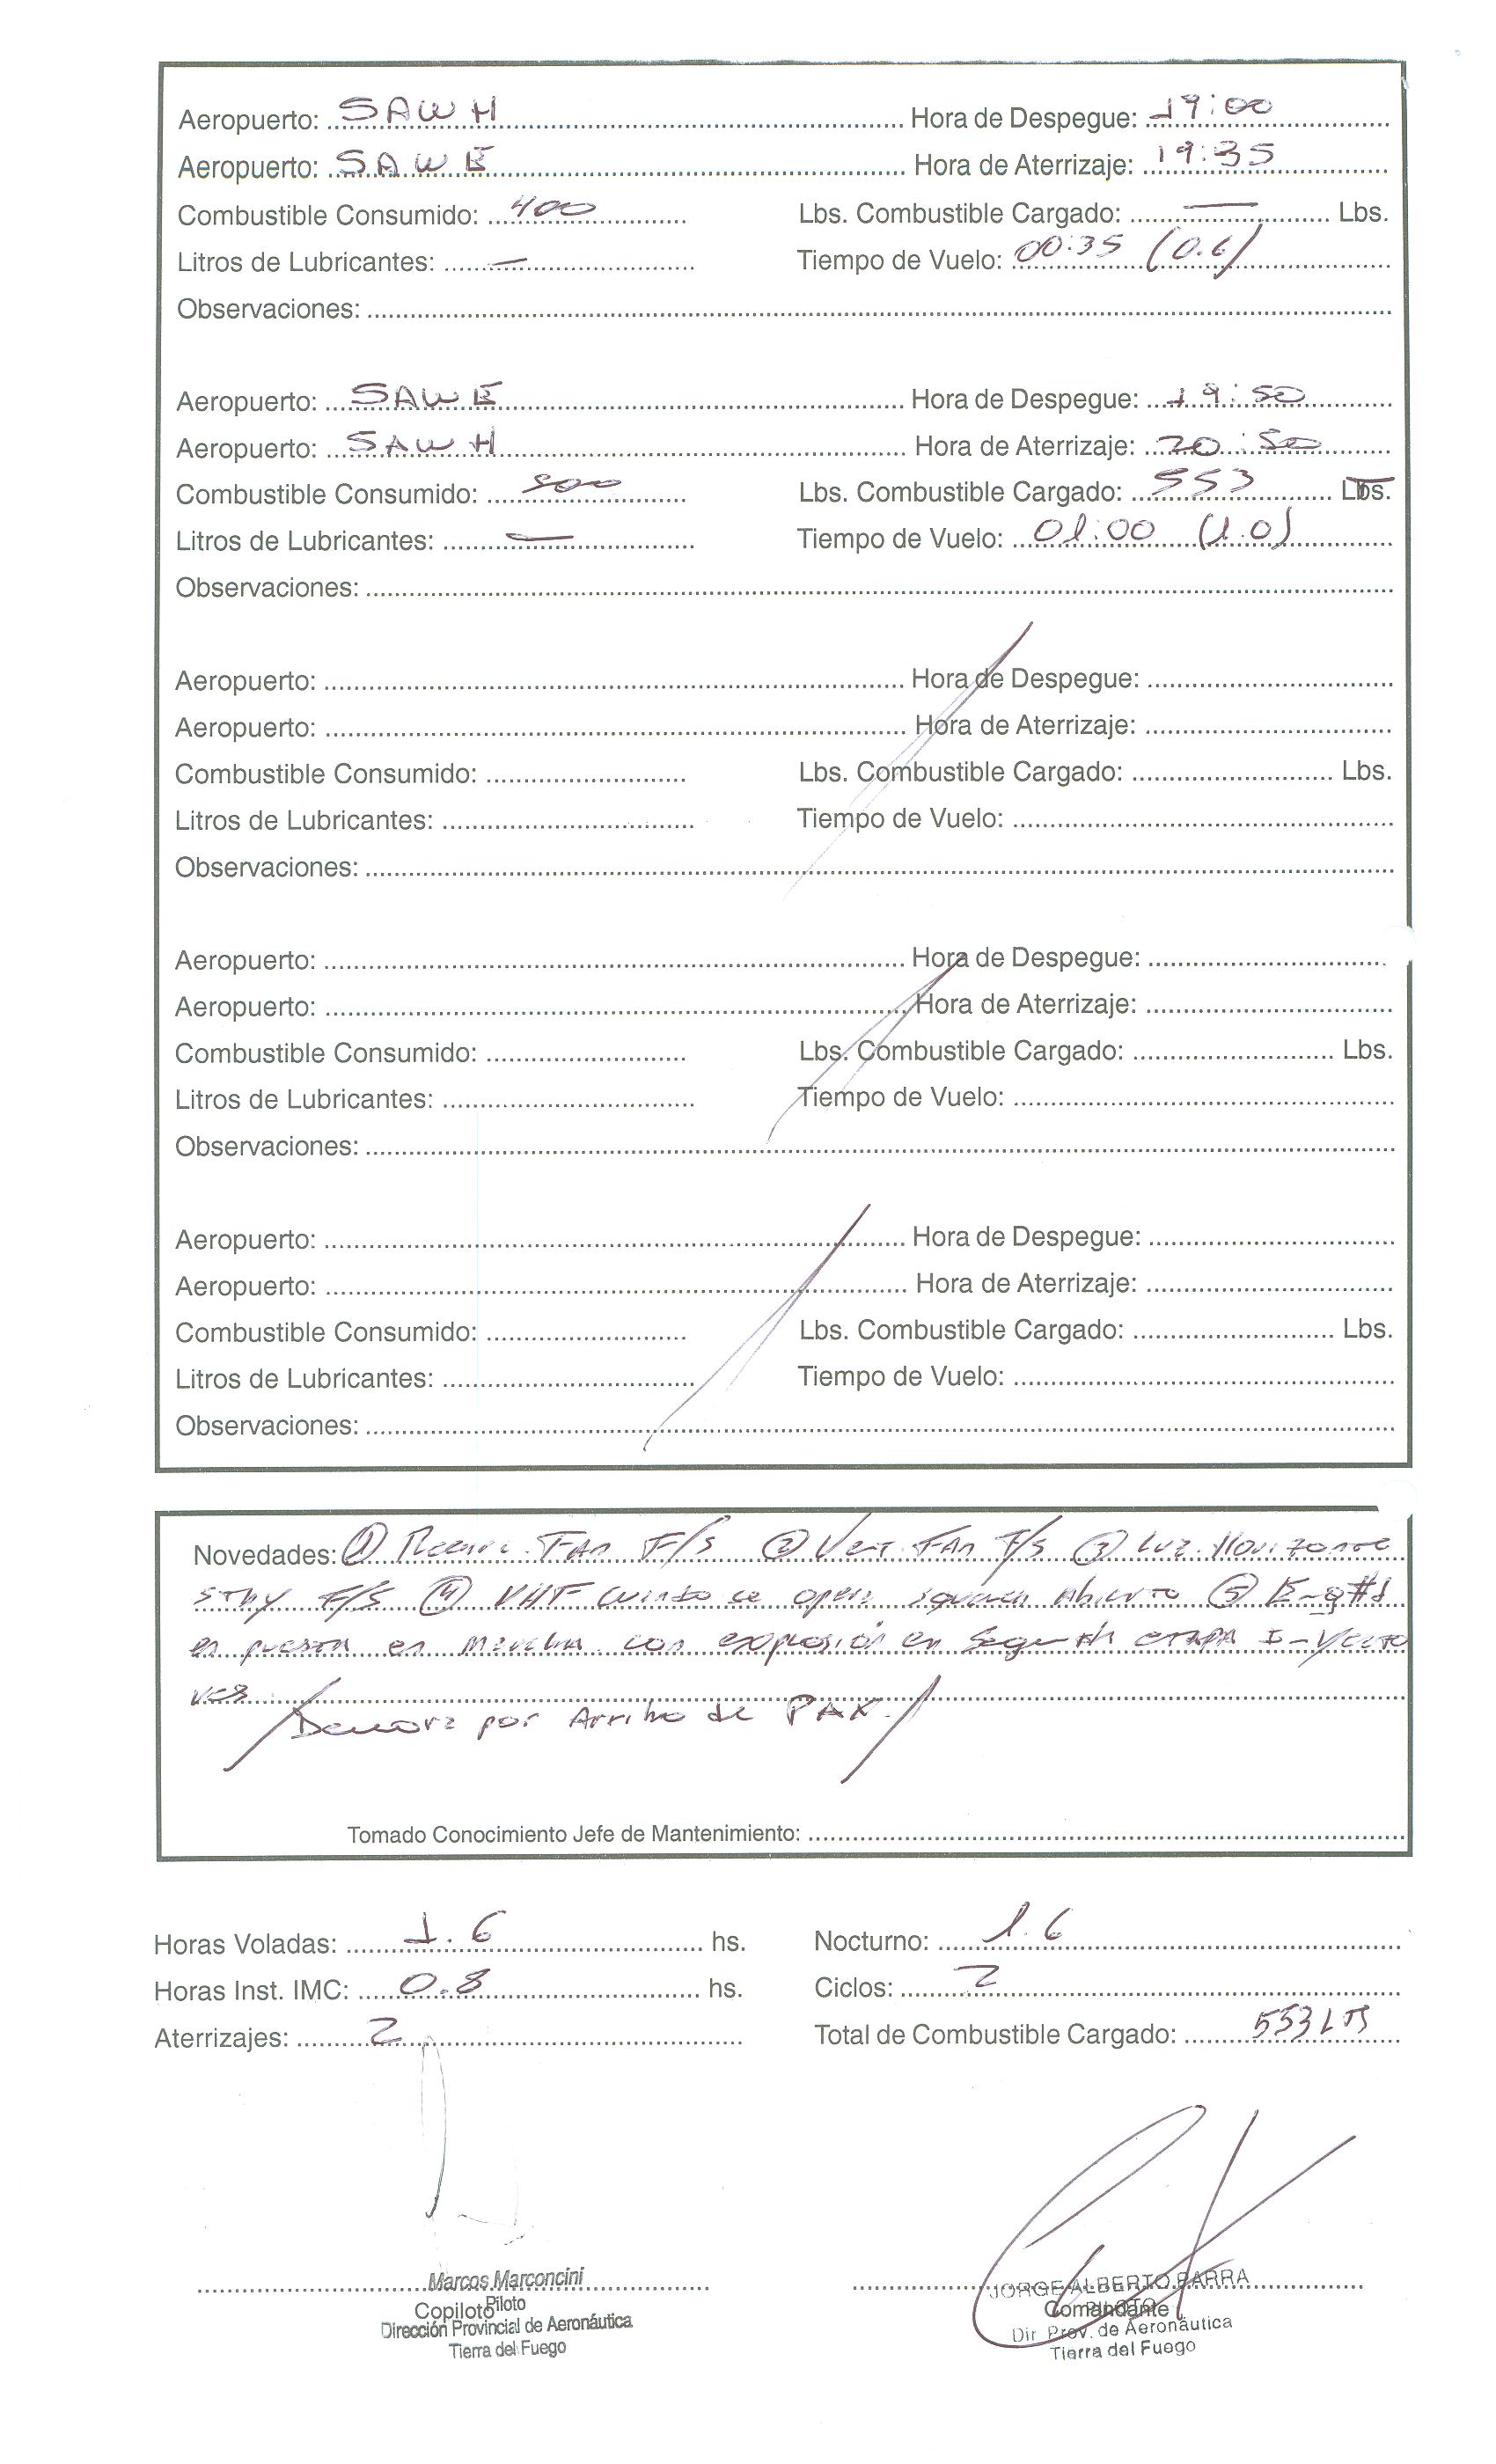 Aeropuerto: SAWH Hora de Despegue: 19:00
Aeropuerto: SAWE Hora de Aterrizaje: 19:35
Combustible Consumido: 400 Lbs. Combustible Cargado: — Lbs.
Litros de Lubricantes: — Tiempo de Vuelo: 00:35 (0.6)
Observaciones:
Aeropuerto: SAWE Hora de Despegue: 19:50
Aeropuerto: SAWH Hora de Aterrizaje: 20:50
Combustible Consumido: Lbs. Combustible Cargado: 553 Lbs.
Litros de Lubricantes: — Tiempo de Vuelo: 01:00 (1.0)
Observaciones:
Aeropuerto: Hora de Despegue:
Aeropuerto: Hora de Aterrizaje:
Combustible Consumido: Lbs. Combustible Cargado: Lbs.
Litros de Lubricantes: Tiempo de Vuelo:
Observaciones:
Aeropuerto: Hora de Despegue:
Aeropuerto: Hora de Aterrizaje:
Combustible Consumido: Lbs. Combustible Cargado: Lbs.
Litros de Lubricantes: Tiempo de Vuelo:
Observaciones:
Aeropuerto: Hora de Despegue:
Aeropuerto: Hora de Aterrizaje:
Combustible Consumido: Lbs. Combustible Cargado: Lbs.
Litros de Lubricantes: Tiempo de Vuelo:
Observaciones:
Novedades: ① Recirc. Fan F/S ② Vent. Fan F/S ③ Luz Horizonte
STBY F/S ④ VHF cuando se opera squelch Abierto ⑤ Eng #1
en puesta en marcha con explosión en segunda etapa
/Demora por Arribo de PAX./
Tomado Conocimiento Jefe de Mantenimiento:
Horas Voladas: 1.6 hs. Nocturno: 1.6
Horas Inst. IMC: 0.8 hs. Ciclos: 2
Aterrizajes: 2 Total de Combustible Cargado: 553 LTS
Marcos Marconcini JORGE ALBERTO PARRA
Piloto PILOTO
Copiloto Comandante
Dirección Provincial de Aeronáutica Dir. Prov. de Aeronáutica
Tierra del Fuego Tierra del Fuego